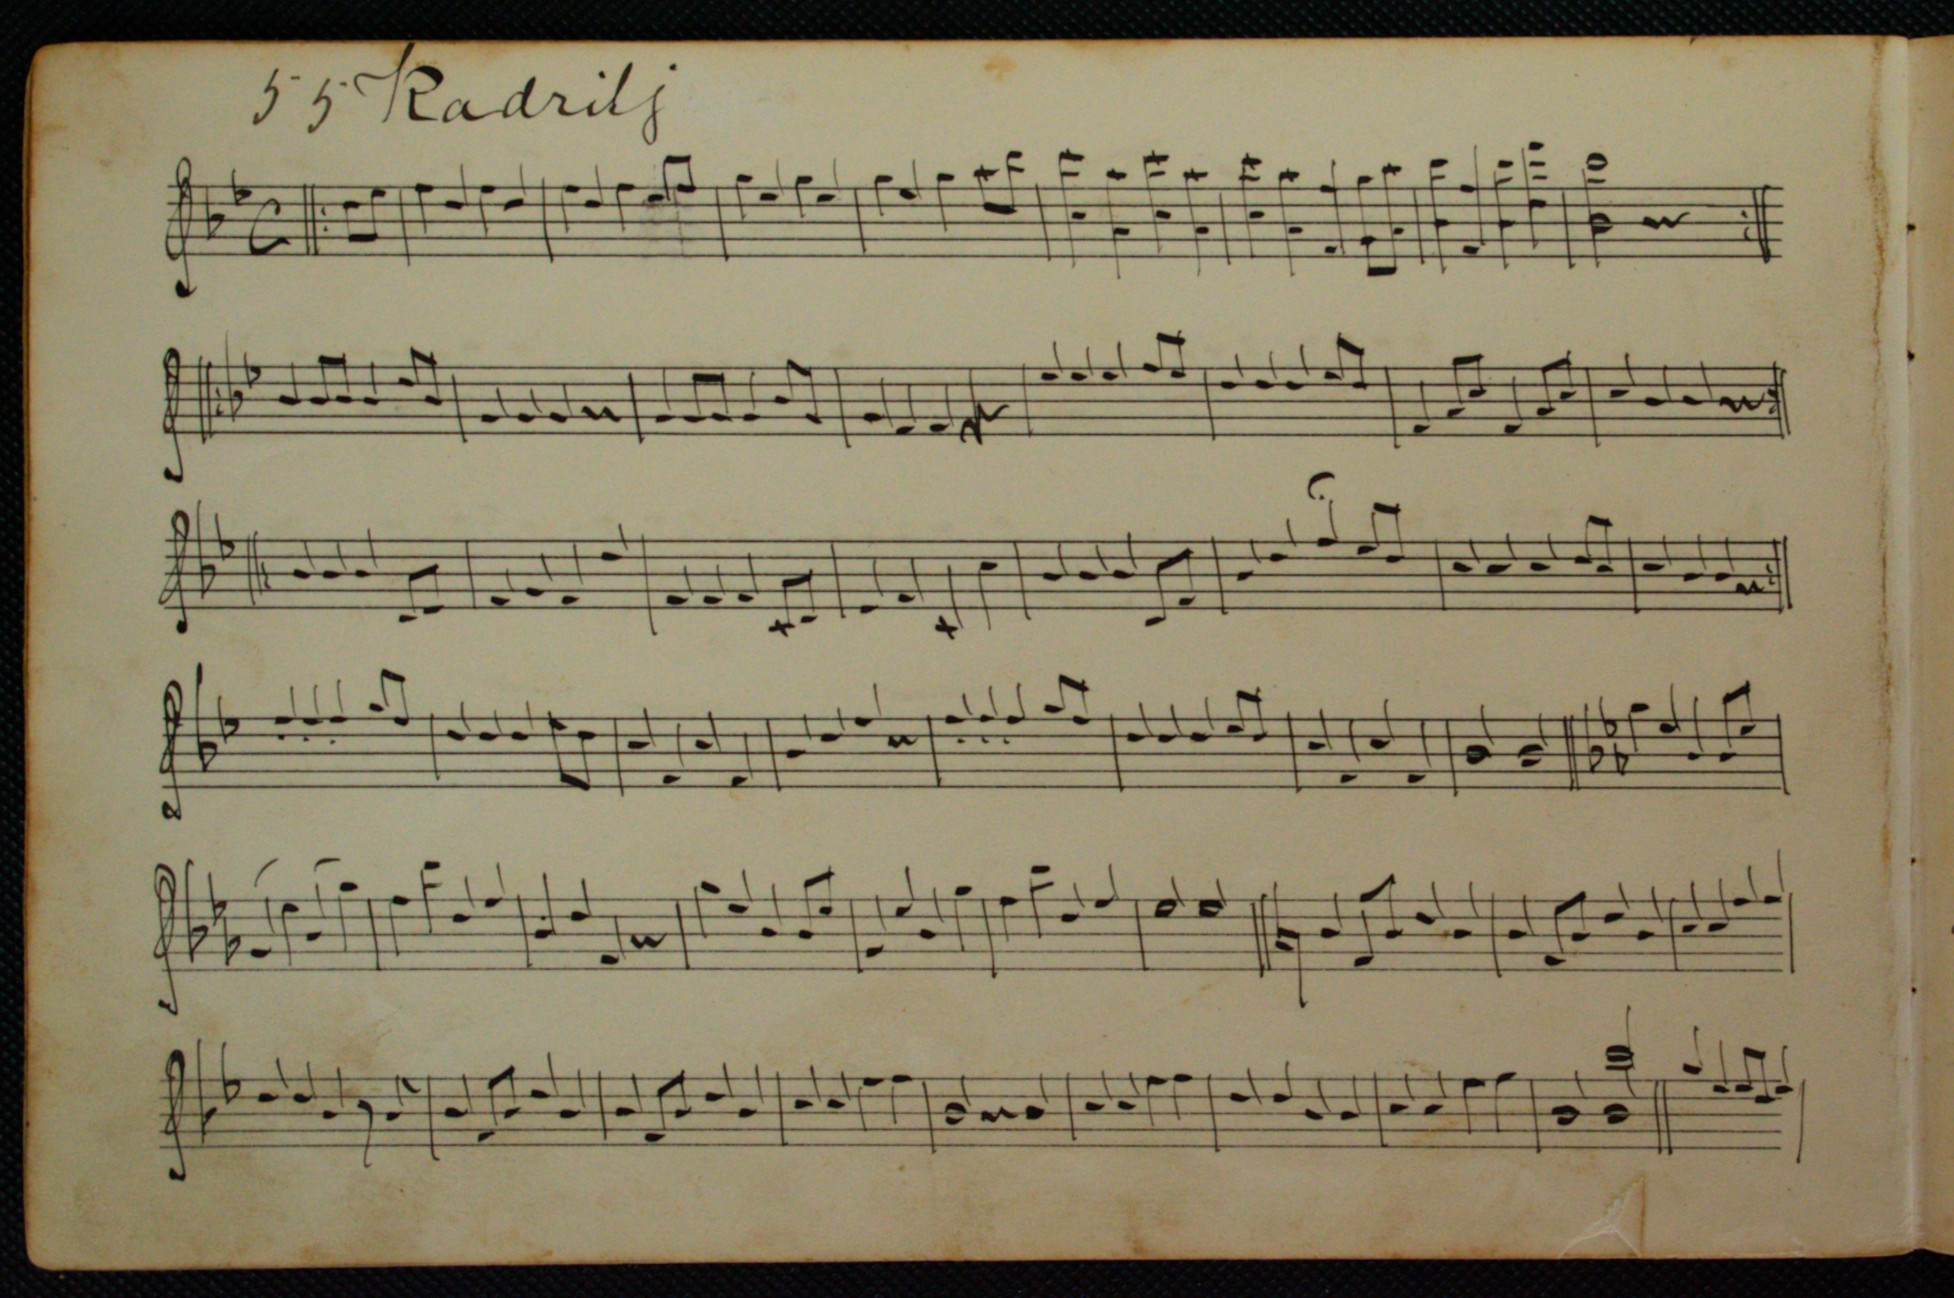 55 Kadrilj